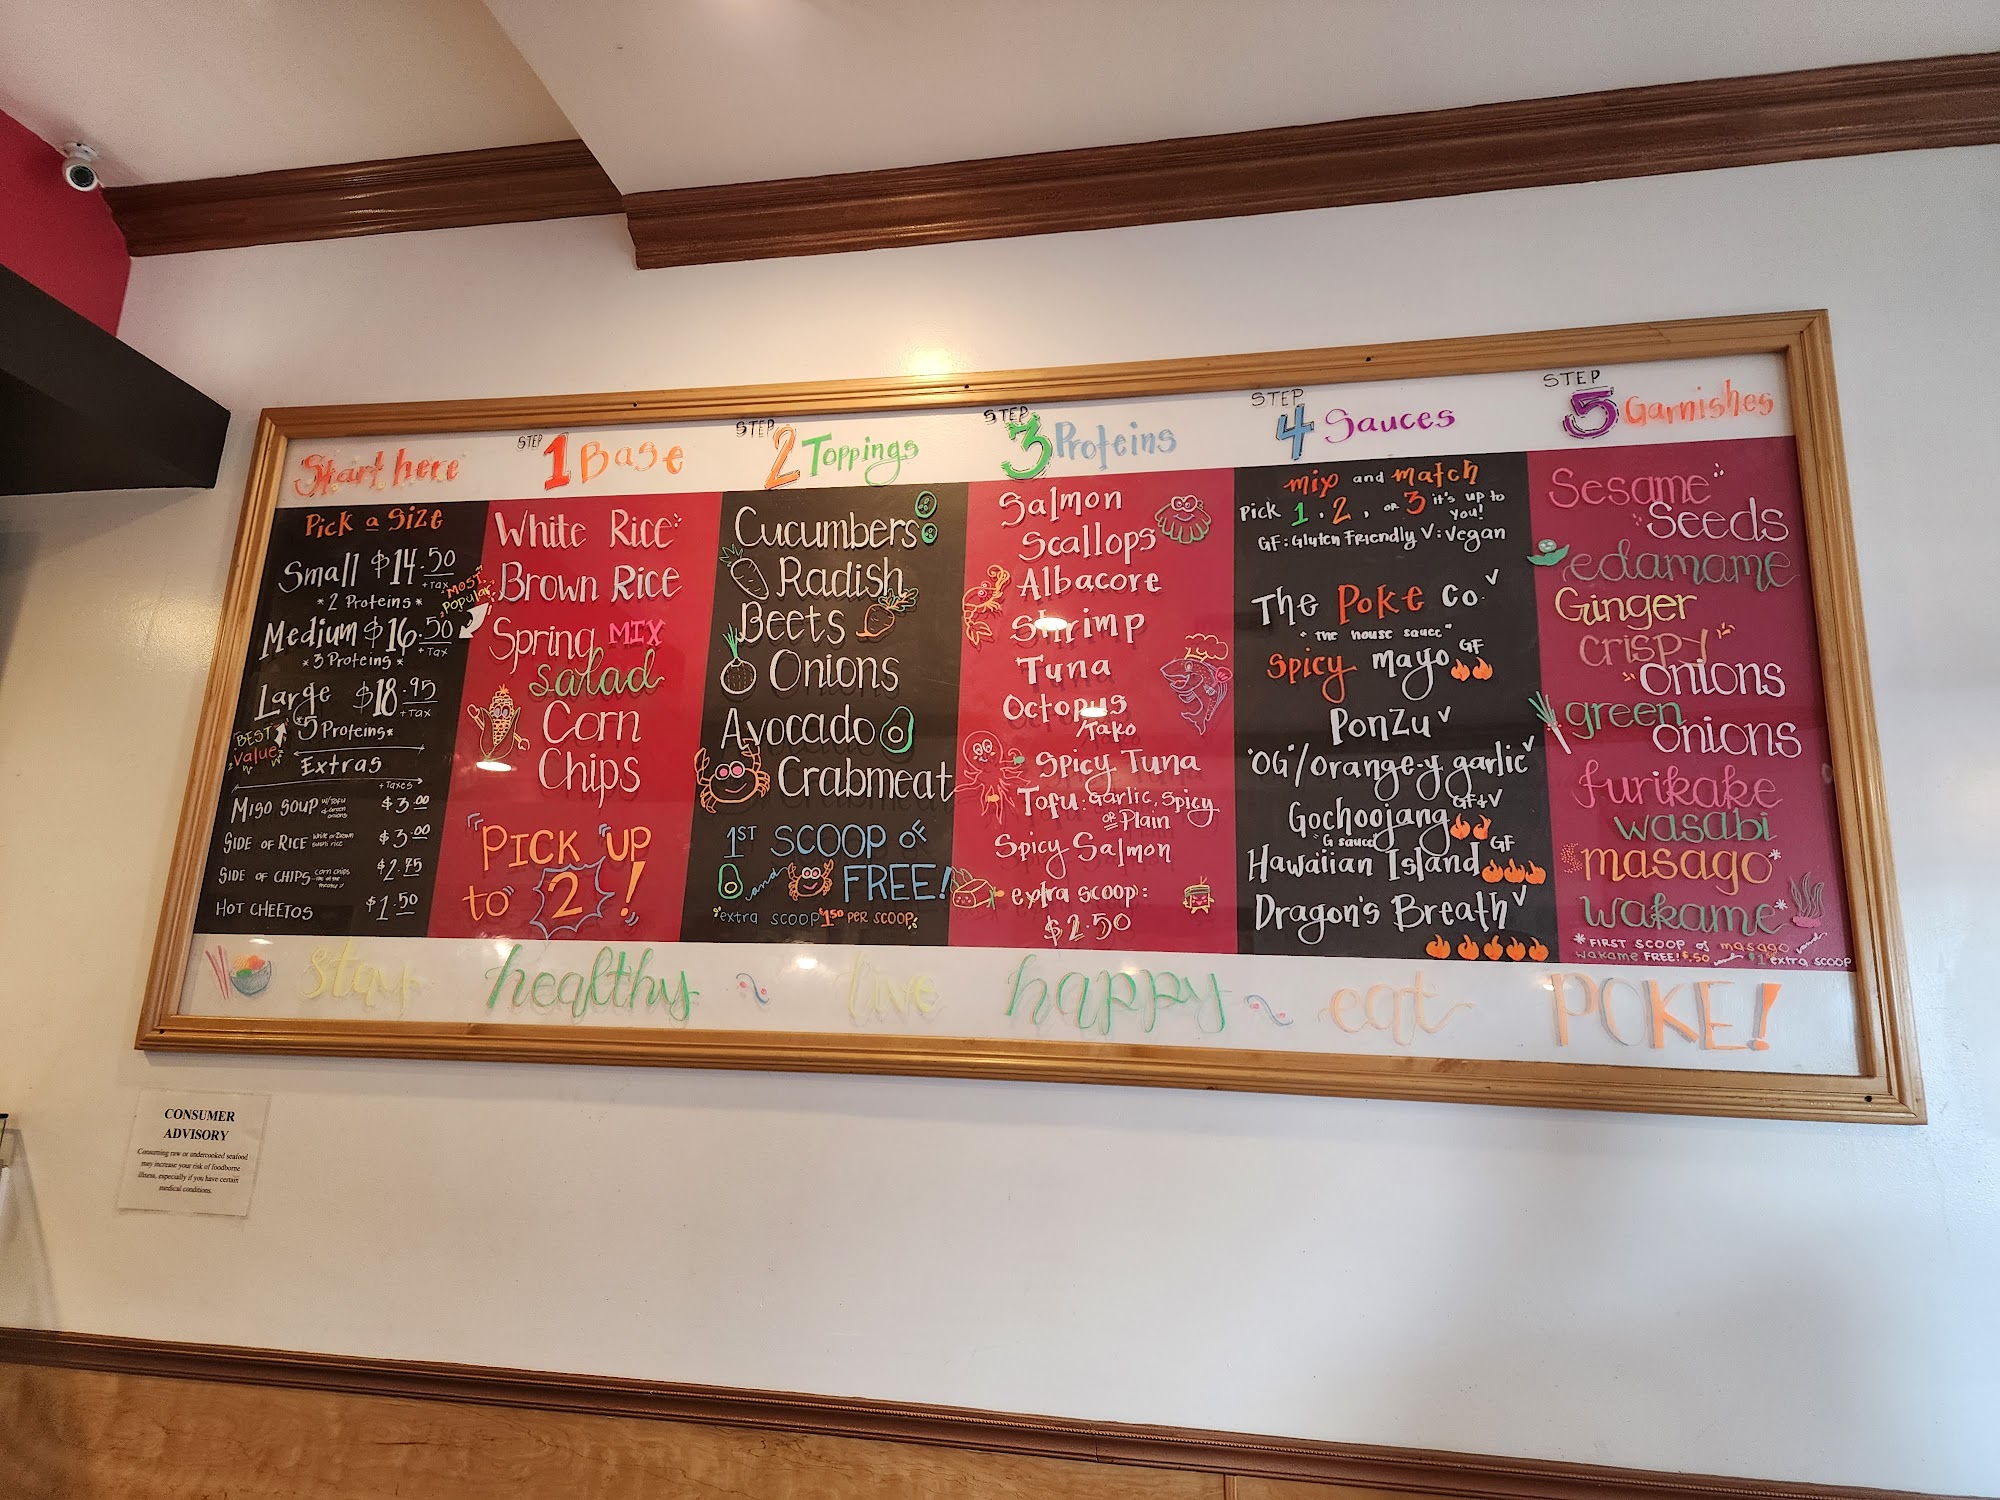 Start here
Pick a Size
Small $14.50
+Tax
*2 Proteins*
MOST
Popular
Medium $16.50
+Tax
*3 Proteins*
Large $18.95
+Tax
*5 Proteins*
BEST
Value
Extras
+Taxes
MISO SOUP w/Tofu & Green onions $3.00
SIDE OF RICE White or Brown sushi rice $3.00
SIDE OF CHIPS corn chips $2.75
HOT CHEETOS $1.50
STEP 1 Base
White Rice
Brown Rice
Spring MIX
salad
Corn
Chips
"PICK UP
to 2!
STEP 2 Toppings
Cucumbers
Radish
Beets
Onions
Avocado
Crabmeat
1ST SCOOP OF
and FREE!
*extra scoop $1.50 PER SCOOP
STEP 3 Proteins
Salmon
Scallops
Albacore
Shrimp
Tuna
Octopus
/Tako
Spicy Tuna
Tofu: Garlic, Spicy
or Plain
Spicy Salmon
extra scoop:
$2.50
STEP 4 Sauces
mix and match
Pick 1, 2, or 3 it's up to
you!
GF: Gluten Friendly V: Vegan
The Poke Co. V
"the house sauce"
Spicy mayo GF
Ponzu V
"OG"/orange-y garlic V
Gochoojang GF+V
"G sauce"
Hawaiian Island GF
Dragon's Breath V
STEP 5 Garnishes
Sesame
Seeds
edamame
Ginger
crispy
onions
green
onions
furikake
wasabi
masago*
wakame*
* FIRST SCOOP of masago and
wakame FREE! $.50 and $1 extra scoop
stay healthy live happy eat POKE!
CONSUMER
ADVISORY
Consuming raw or undercooked seafood
may increase your risk of foodborne
illness, especially if you have certain
medical conditions.